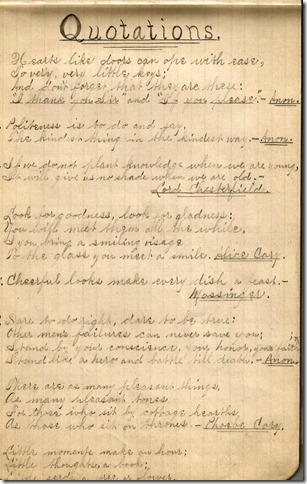 Quotations.
Hearts like doors can ope with ease,
To very, very little keys;
And don't forget that they are these:
"I thank you Sir" and "If you please". - Anon.
Politeness is to do and say,
The kindest thing in the kindest way. - Anon.
If we do not plant knowledge when we are young,
It will give us no shade when we are old. -
Lord Chesterfield.
Look for goodness, look for gladness;
You will meet them all the while,
If you bring a smiling visage
To the glass you meet a smile. Alice Cary.
Cheerful looks make every dish a feast. -
Massinger.
Dare to do right, dare to be true:
Other men's failures can never save you;
Stand by your conscience, your honor, your faith
Stand like a hero and battle till death. - Anon.
There are as many pleasant things,
As many pleasant tones
For those who sit by cottage hearths,
As those who sit on thrones. - Phoebe Cary.
Little moments make an hour;
Little thoughts, a book;
seeds a tree or flower